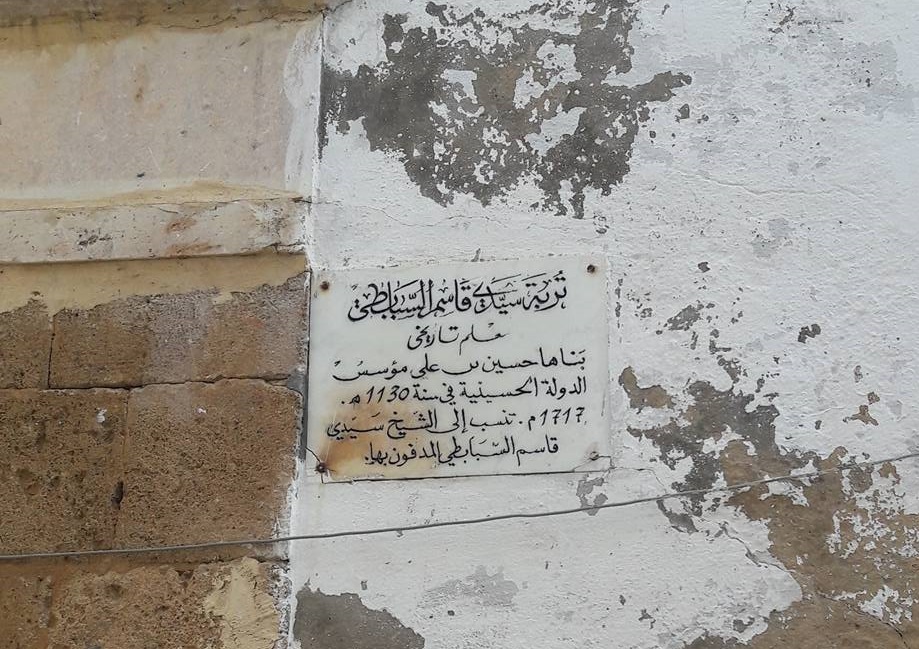 تُربَة سيَّدي قَاسِم السَّبَابطِي
معلم تاريخي
بَناها حسين بن علي مؤسسُ
الدولة الحسينية في سنة 1130 هـ.
1717 م. تنسب إلى الشَّيخ سَيَدي
قاسم السَّبَابطي المدفون بها.